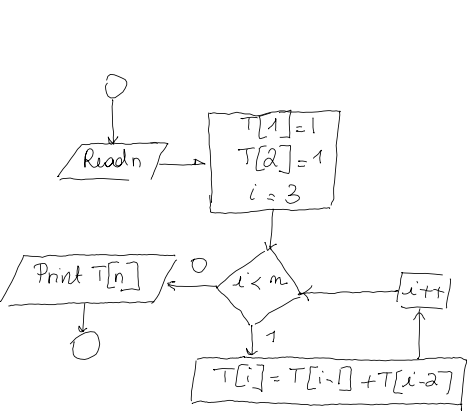 Read n
T[1]=1
T[2]=1
i = 3
i < n
0
1
Print T[n]
i++
T[i] = T[i-1] + T[i-2]